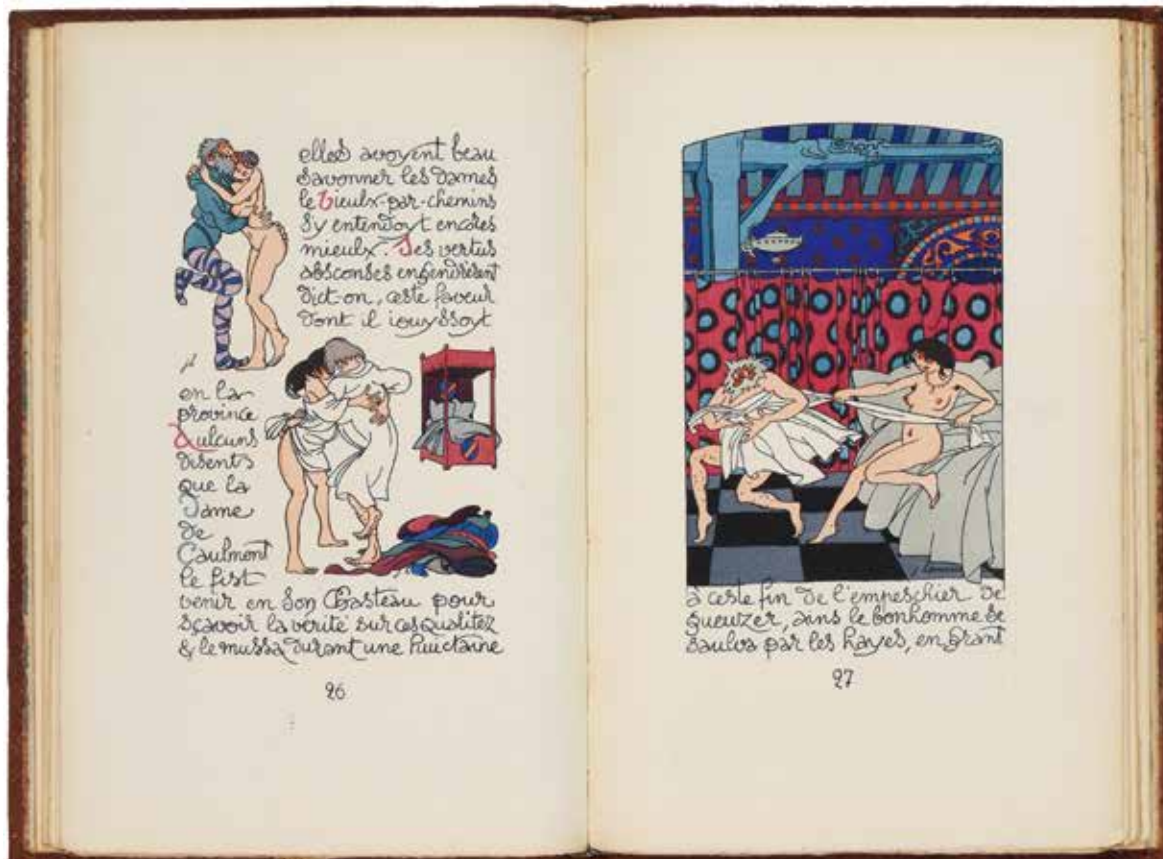 elles avoyent beau
savonner les dames
le Vieulx-par-chemins
s'y entendoyt encores
mieulx. Ses vertus
absconses engendrèrent
dict-on, ceste faveur
dont il iouyssoyt
en la
province
Aulcuns
disents
que la
Dame
de
Caulmont
le fist
venir en son Chasteau pour
sçavoir la verité sur ces qualitez
& le mussa durant une huictaine
26
à ceste fin de l'empeschier de
gueuzer, ains le bonhomme se
saulva par les hayes, en grant
27